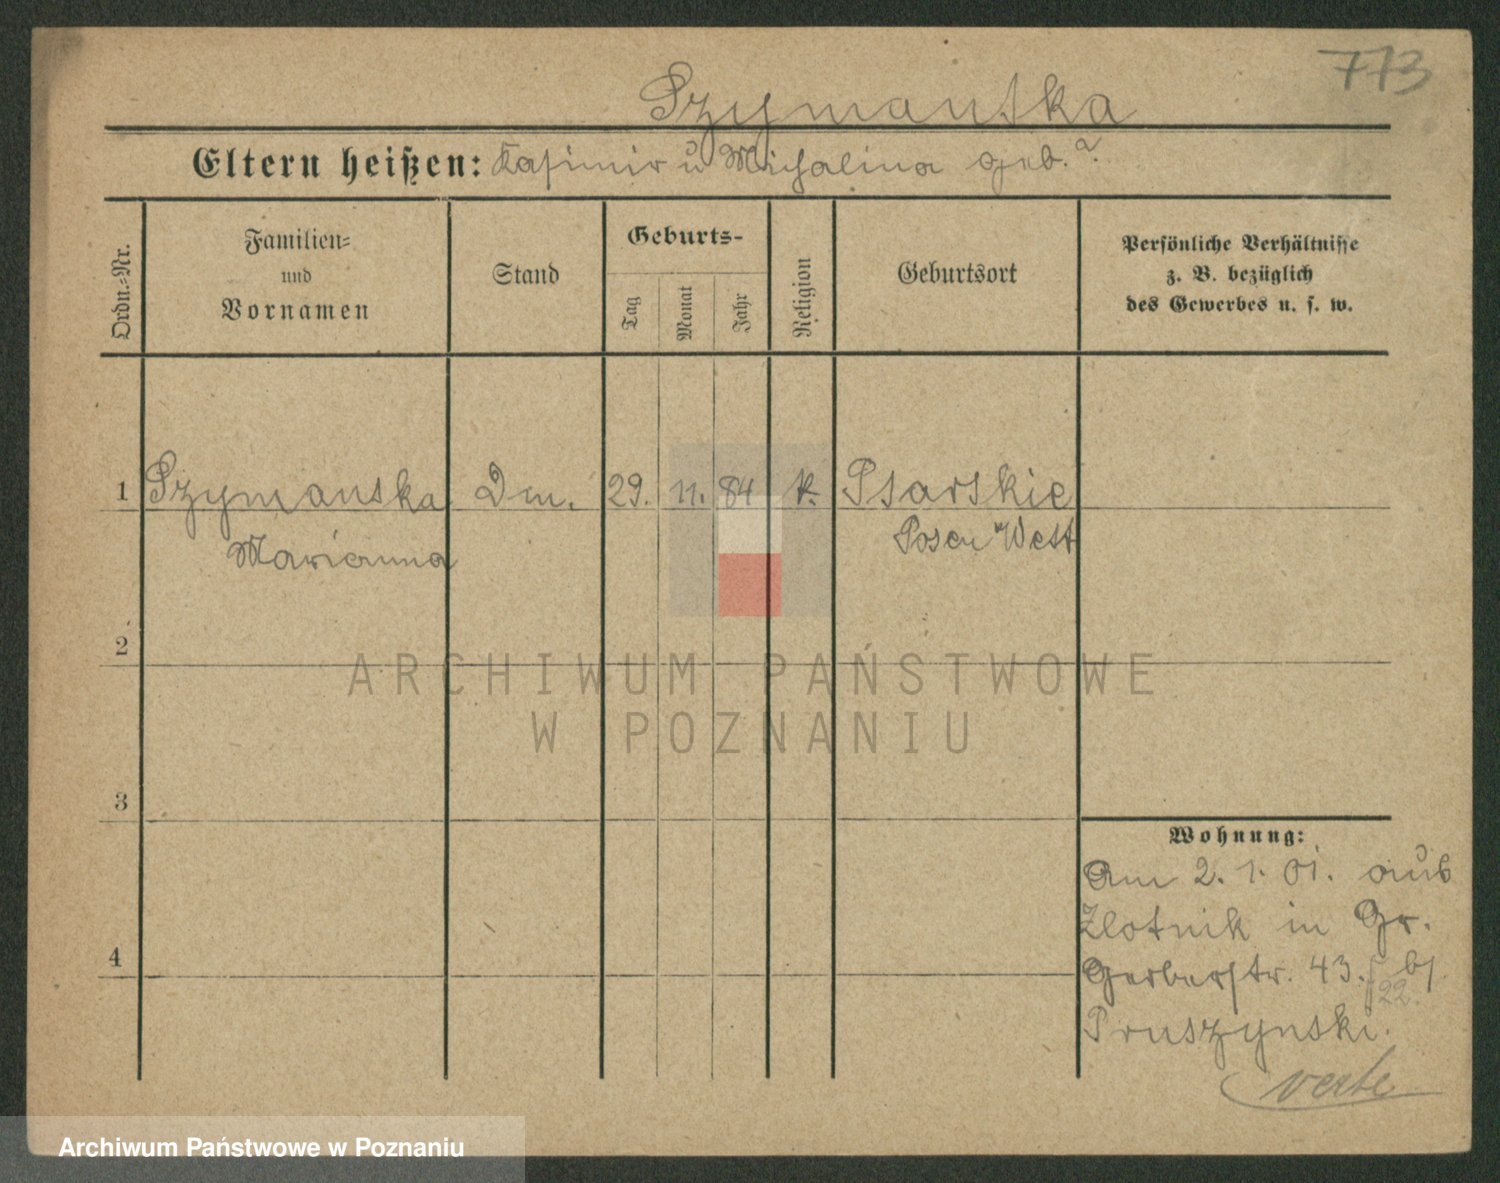 773
Szymanska
Eltern heißen: Kasimir u Michalina geb. ?
Ordn.=Nr.
Familien=
und
Vornamen
Stand
Geburts-
Tag
Monat
Jahr
Religion
Geburtsort
Persönliche Verhältnisse
z. B. bezüglich
des Gewerbes u. s. w.
1 Szymanska Dm. 29. 11. 84 k. Psarskie
Marianna Posen West
2
3
4
Wohnung:
Am 2. 1. 01. aus
Zlotnik in Gr.
Gerberstr. 43. b/
22.
Pruszynski.
verte
ARCHIWUM PAŃSTWOWE
W POZNANIU
Archiwum Państwowe w Poznaniu